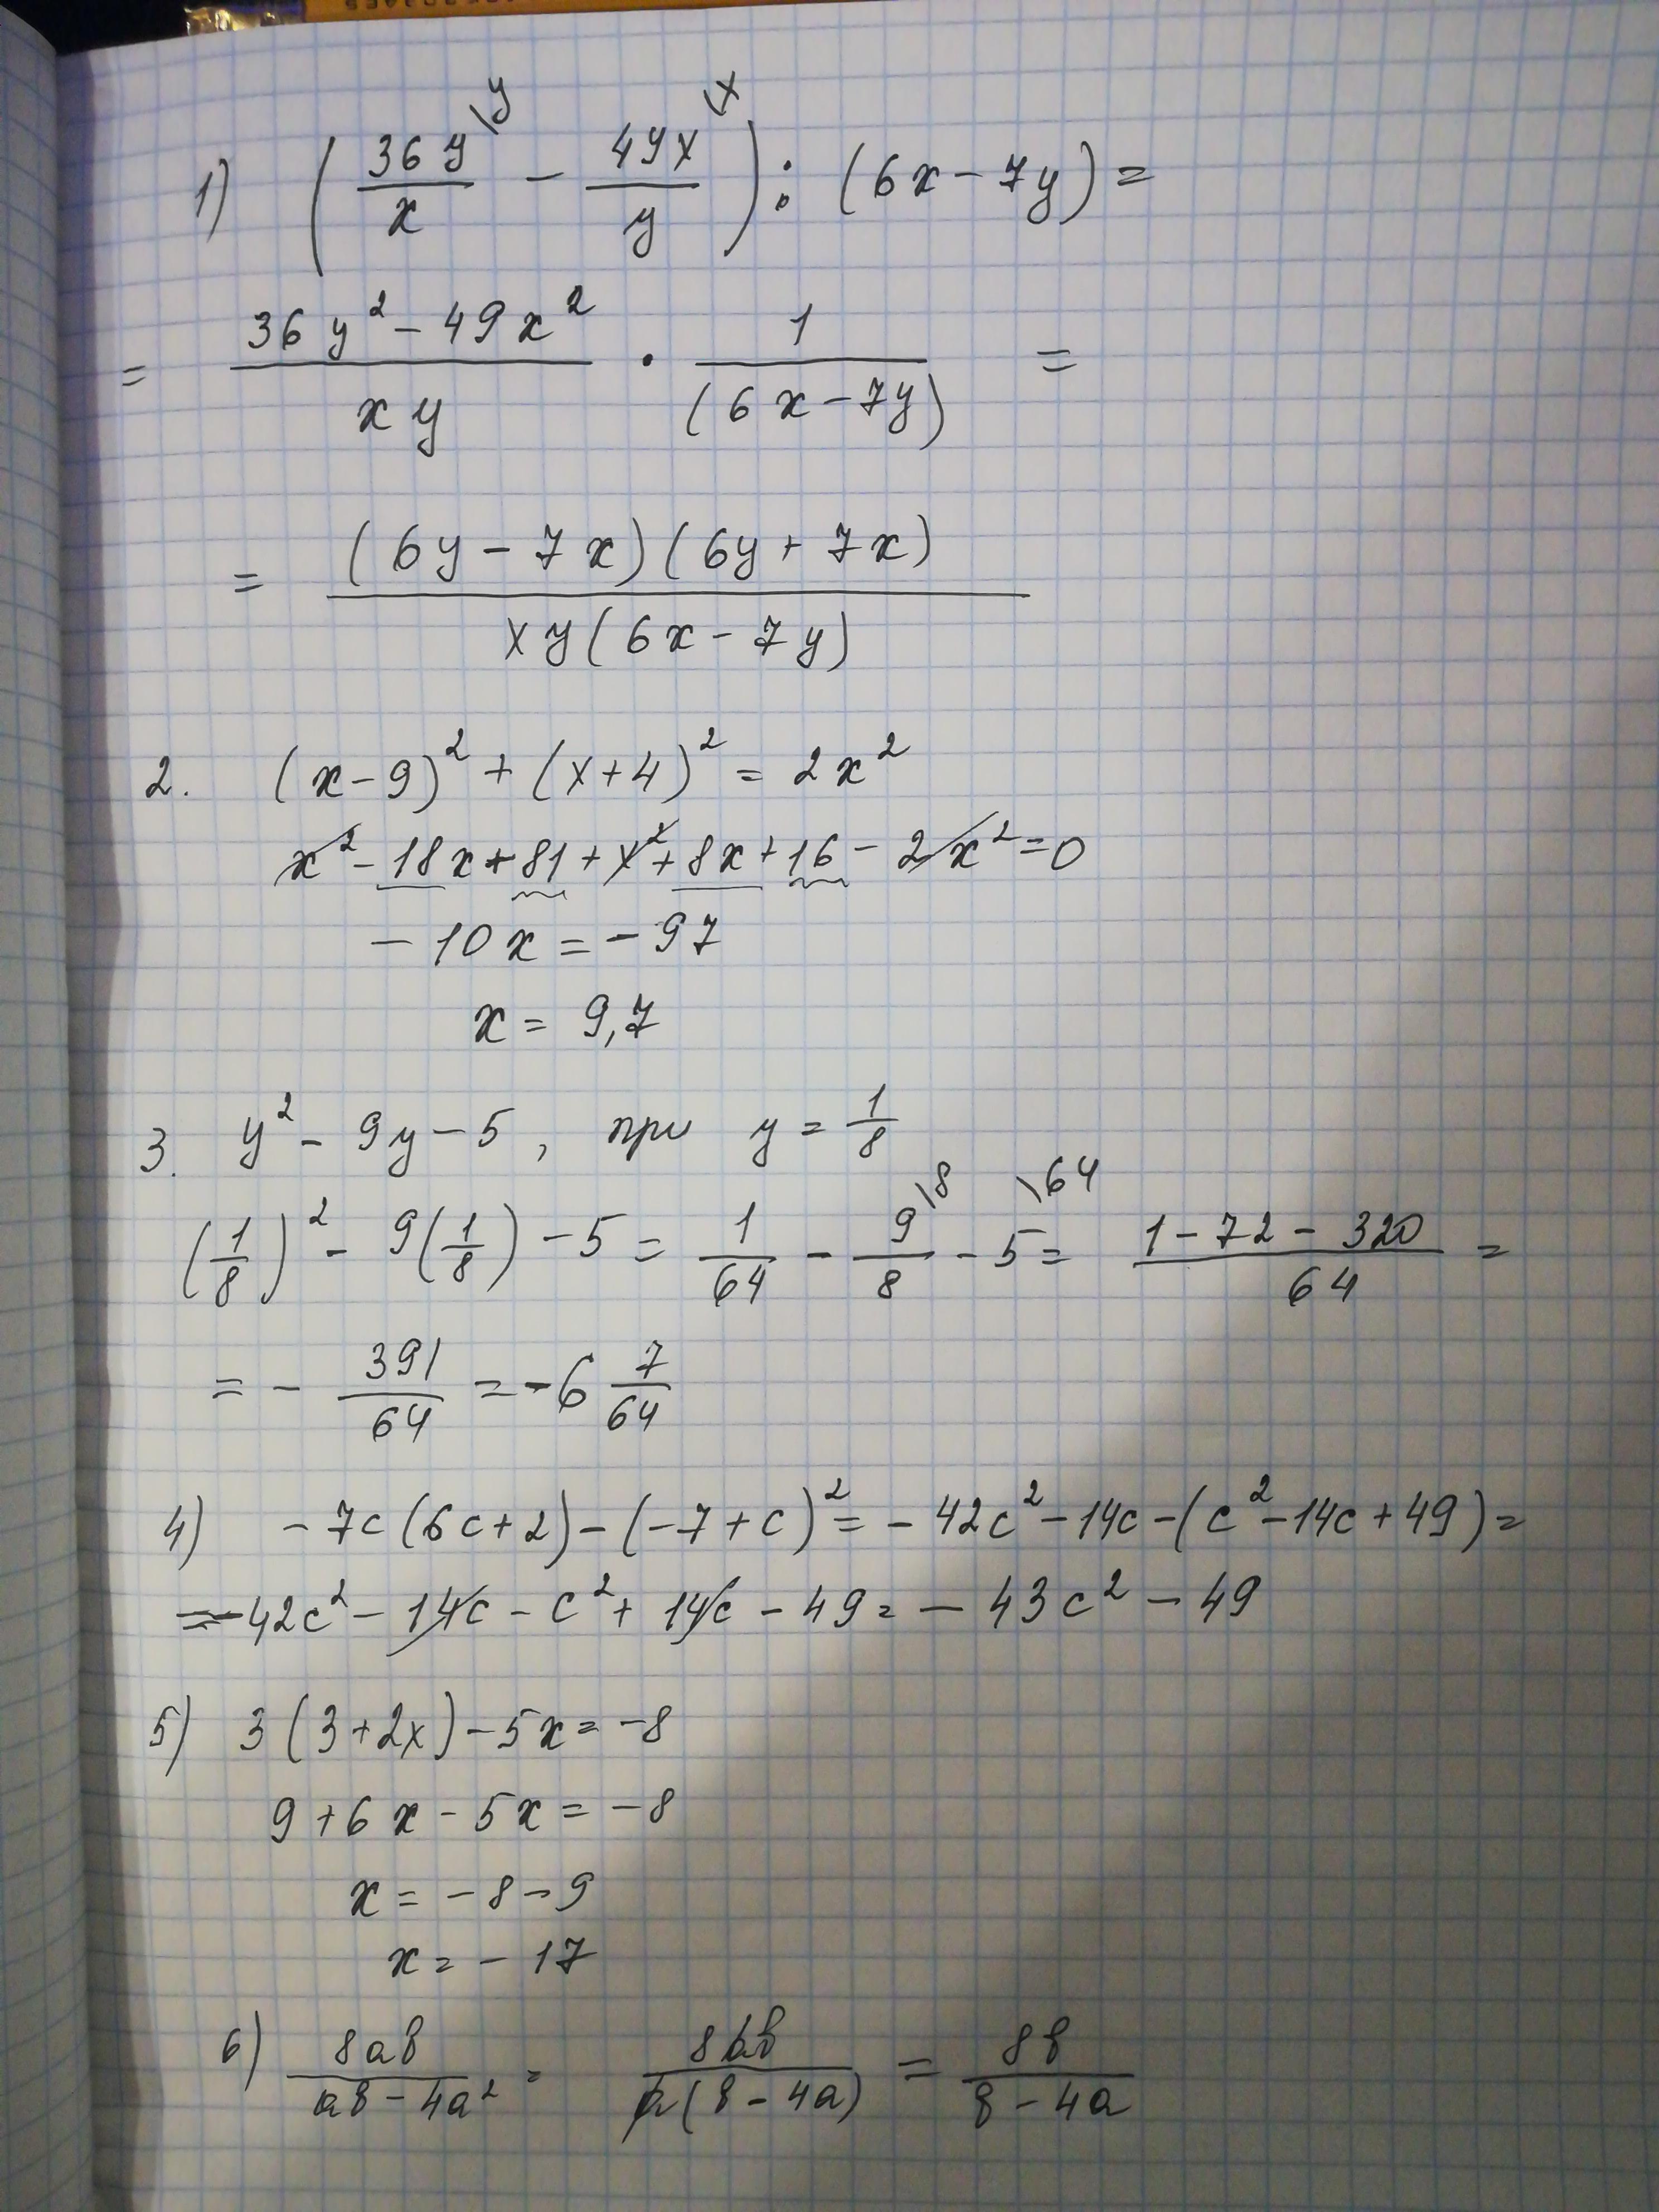 1) (36y/x \y − 49x/y \x) : (6x − 7y) =
= (36y² − 49x²)/(xy) · 1/(6x − 7y) =
= (6y − 7x)(6y + 7x)/(xy(6x − 7y))
2. (x − 9)² + (x + 4)² = 2x²
x² − 18x + 81 + x² + 8x + 16 − 2x² = 0
− 10x = − 97
x = 9,7
3. y² − 9y − 5 , при y = 1/8
(1/8)² − 9(1/8) − 5 = 1/64 − 9/8 \8 − 5 \64 = (1 − 72 − 320)/64 =
= − 391/64 = − 6 7/64
4) − 7c(6c + 2) − (−7 + c)² = − 42c² − 14c − (c² − 14c + 49) =
= − 42c² − 14c − c² + 14c − 49 = − 43c² − 49
5) 3(3 + 2x) − 5x = −8
9 + 6x − 5x = −8
x = − 8 − 9
x = − 17
6) 8ab/(ab − 4a²) = 8ab/(a(b − 4a)) = 8b/(b − 4a)